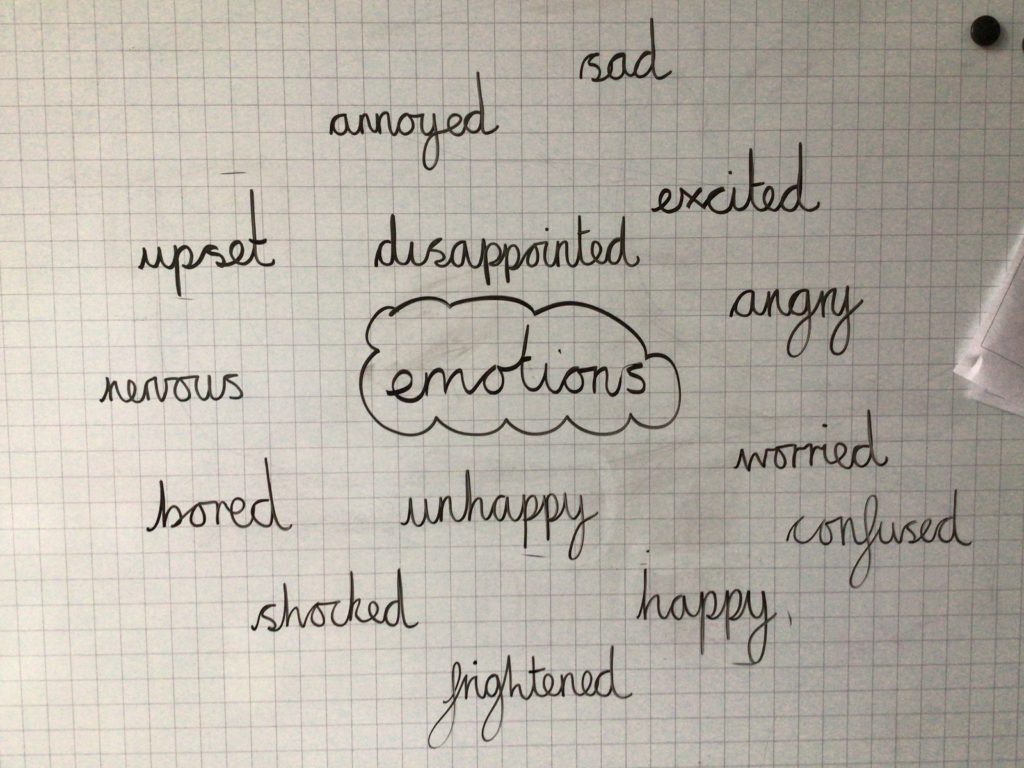 sad
annoyed
excited
upset
disappointed
angry
emotions
nervous
worried
bored
unhappy
confused
shocked
happy
frightened